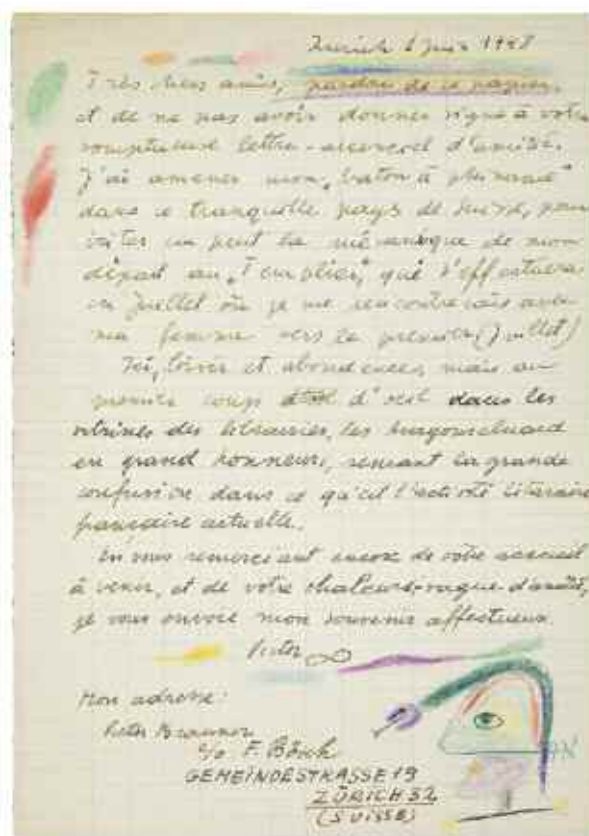 Zurich 2 Juin 1948
Très chers amis, pardon de ce papier,
et de ne pas avoir donner signe à votre
somptueuse lettre-accueil d'amitié.
J'ai amener mon "baton à
dans ce tranquille pays de pour
un peut la de mon
départ au que s'effectuera
en Juillet où je me rencontrerais avec
ma femme vers le premier (Juillet)
Ici, loisir et abondences, mais au
premier coup d'oeil dans les
vitrines des librairies, les
en grand honneur, la grande
confusion dans ce qu'est l'activité literaire
française actuelle.
En vous remerciant encore de votre accueil
à venir, et de votre chaleure-vague d'amitié,
je vous envoie mon souvenir affectueux.
Victor
Mon adresse:
Victor Brauner
c/o F. Bösch
GEMEINDESTRASSE 19
ZÜRICH 32
(SUISSE)